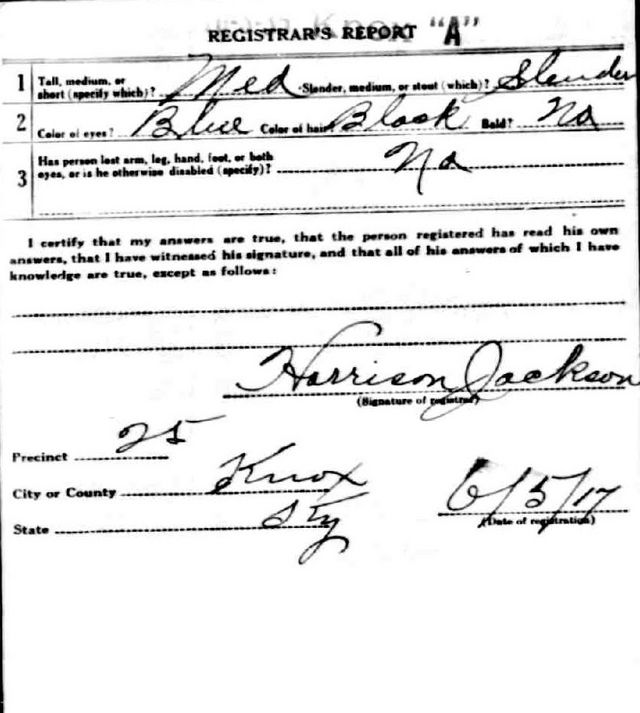 REGISTRAR'S REPORT "A"
1 Tall, medium, or short (specify which)? Med Slender, medium, or stout (which)? Slender
2 Color of eyes? Blue Color of hair Black Bald? No
3 Has person lost arm, leg, hand, foot, or both eyes, or is he otherwise disabled (specify)? No
I certify that my answers are true, that the person registered has read his own
answers, that I have witnessed his signature, and that all of his answers of which I have
knowledge are true, except as follows:
Harrison Jackson
(Signature of registrar)
Precinct 25
City or County Knox
State Ky
6/5/17
(Date of registration)